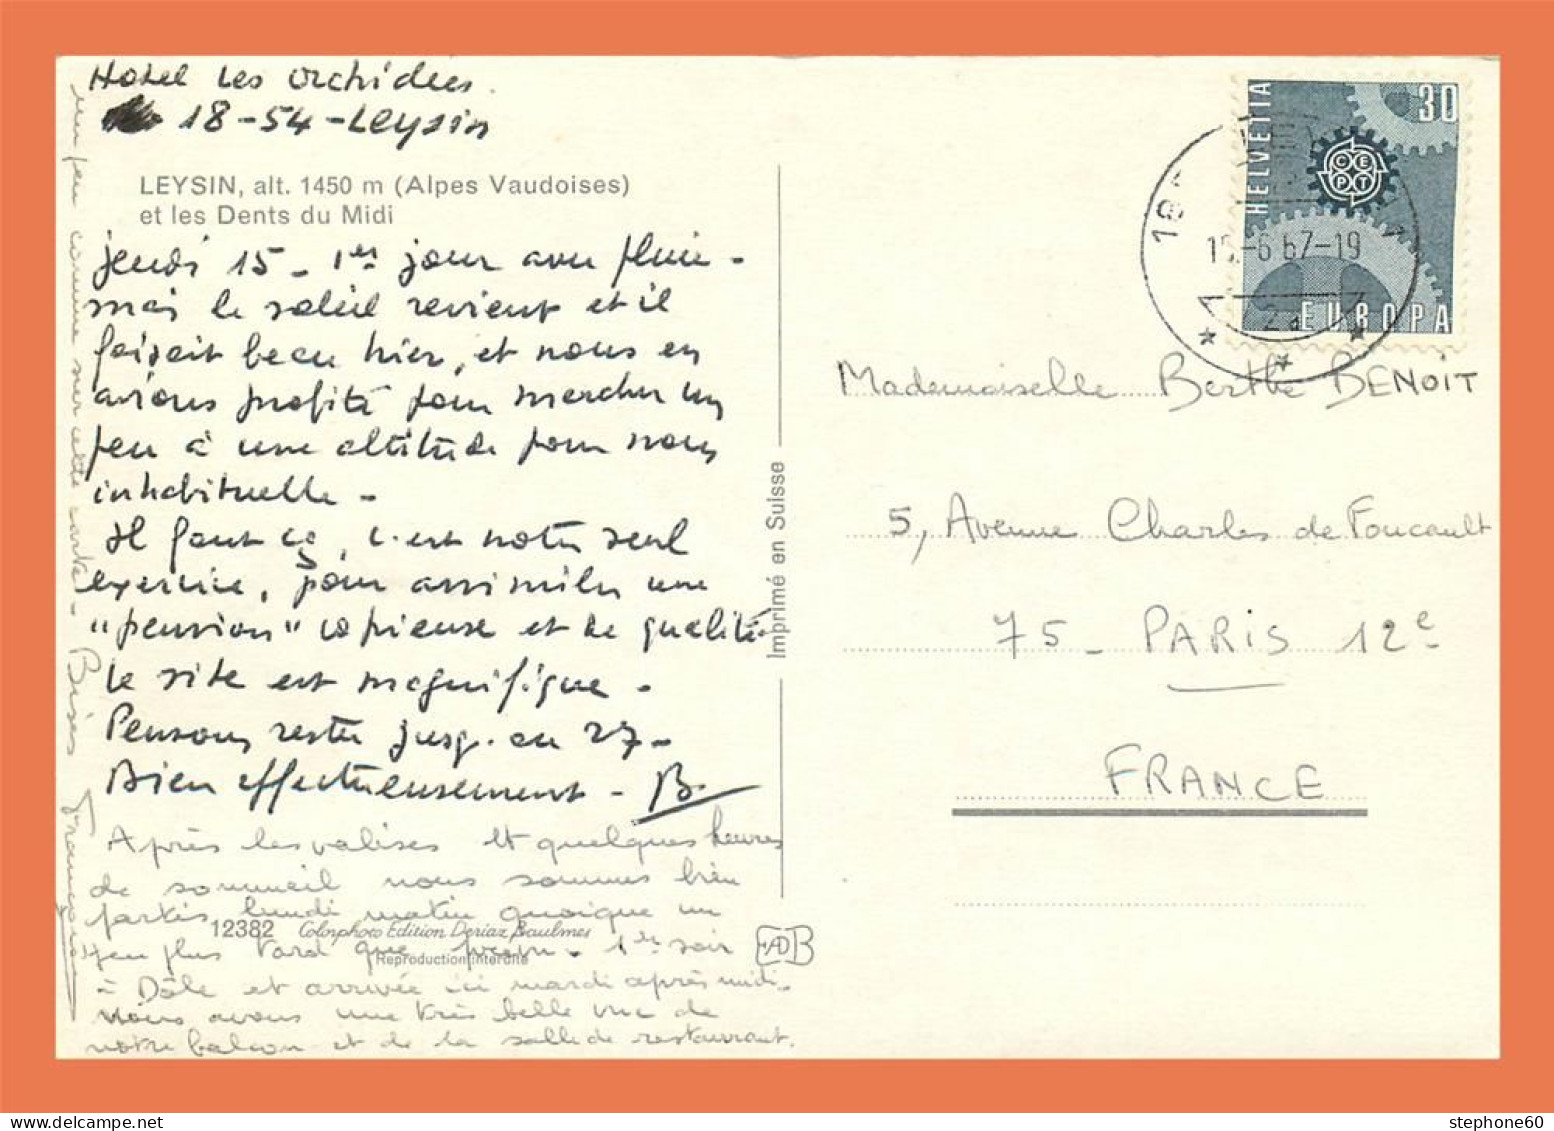 Hotel Les Orchidées
18-54-Leysin
LEYSIN, alt. 1450 m (Alpes Vaudoises)
et les Dents du Midi
jeudi 15 - 1er jour avec pluie -
mais le soleil revient et il
faisait beau hier, et nous en
avions profité pour marcher un
peu à une altitude pour nous
inhabituelle -
Il faut ça, c'est notre seul
exercice, pour assimiler une
"pension" copieuse et de qualité.
Le site est magnifique -
Pensons rester jusq. au 27 -
Bien affectueusement - B.
Après les valises et quelques heures
de sommeil nous sommes bien
partis lundi matin quoique un
peu plus tard que 1er soir
à Dôle et arrivée ici mardi après midi.
Nous avons une très belle vue de
notre balcon et de la salle de restaurant.
un peu comme sur cette carte - Bises
Françoise
12382 Colorphoto Edition Deriaz Baulmes
Reproduction interdite
Imprimé en Suisse
HELVETIA
30
CEPT
EUROPA
15.-6 67-19
Mademoiselle Berthe BENOIT
5, Avenue Charles de Foucault
75 - PARIS 12e
FRANCE
stephone60